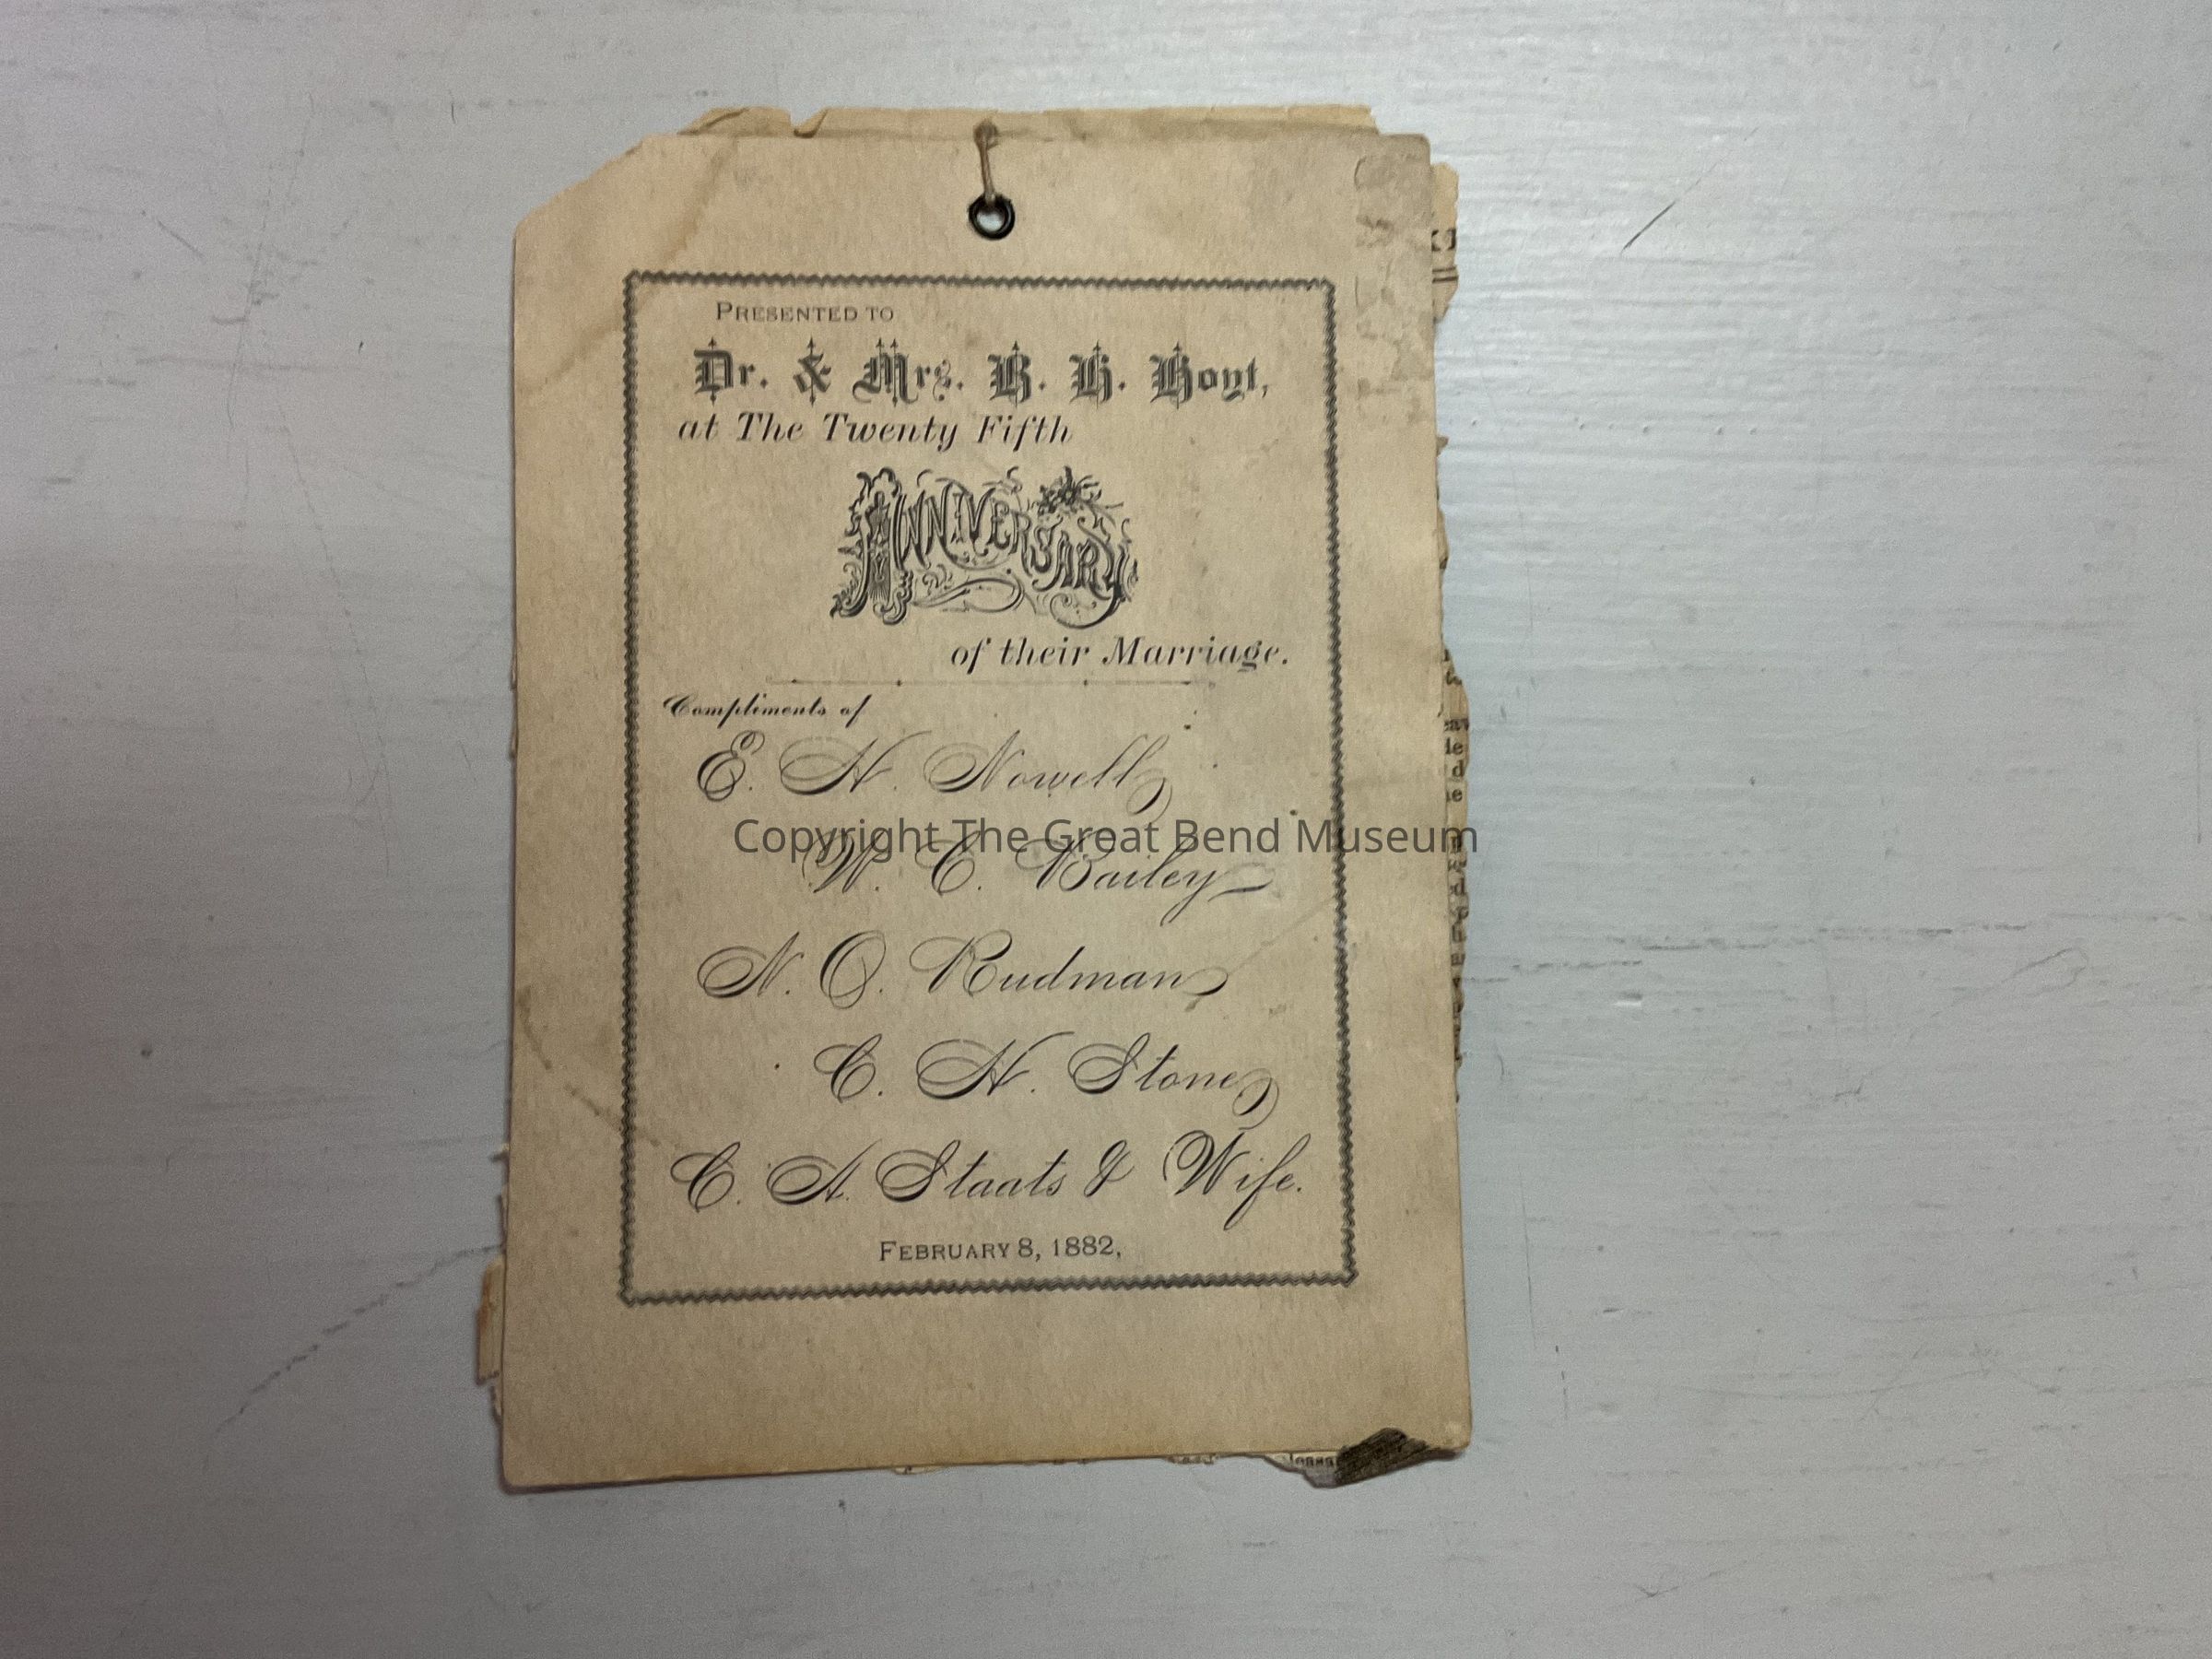 PRESENTED TO
Dr. & Mrs. B. H. Hoyt,
at The Twenty Fifth
ANNIVERSARY
of their Marriage.
Compliments of
E. H. Nowell
Copyright The Great Bend Museum
W. C. Bailey
N. O. Rudman
C. H. Stone
C. A. Staats & Wife.
FEBRUARY 8, 1882.